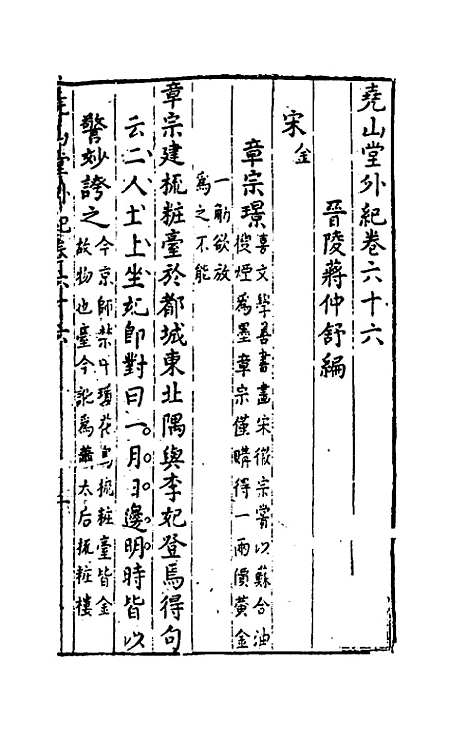 堯山堂外紀卷六十六
晉陵蔣仲舒編
宋金
章宗璟喜文學善書畫宋徽宗嘗以蘇合油
搜烟爲墨章宗僅購得一兩價黃金
一觔欲放
爲之不能
章宗建梳粧臺於都城東北隅與李妃登焉得句
云二人土上坐妃卽對曰一月日邊明時皆以
警妙誇之今京師禁中瓊花島梳粧臺皆金
故物也臺今訛爲蕭太后梳粧樓
堯山堂外紀卷六十六